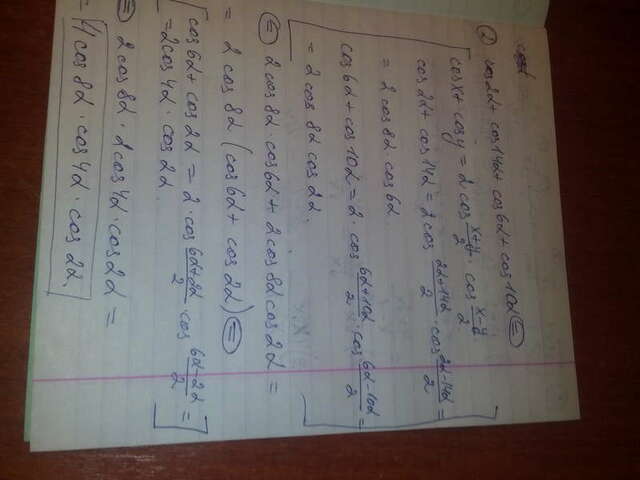 ② cos2α + cos14α + cos6α + cos10α ⊜
[ cosx + cosy = 2 cos (x+y)/2 · cos (x-y)/2
cos2α + cos14α = 2 cos (2α+14α)/2 · cos (2α-14α)/2 =
= 2 cos8α · cos6α
cos6α + cos10α = 2 · cos (6α+10α)/2 · cos (6α-10α)/2 =
= 2 cos8α cos2α. ]
⊜ 2cos8α · cos6α + 2cos8α cos2α =
= 2 cos8α (cos6α + cos2α) ⊜
[ cos6α + cos2α = 2 · cos (6α+2α)/2 · cos (6α-2α)/2 =
= 2cos4α · cos2α. ]
⊜ 2cos8α · 2cos4α · cos2α =
= 4cos8α · cos4α · cos2α.